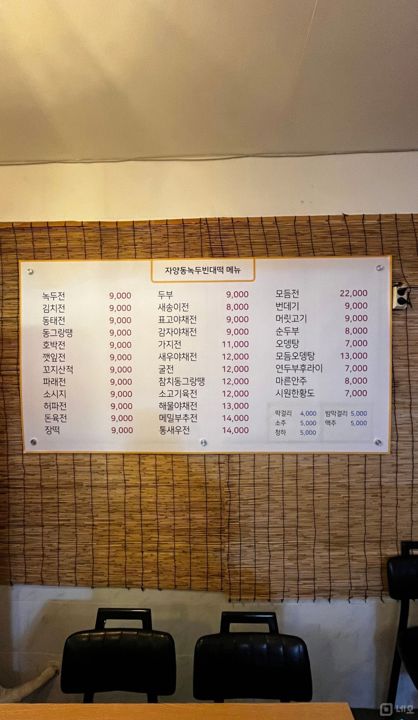 자양동녹두빈대떡 메뉴
녹두전 9,000
김치전 9,000
동태전 9,000
동그랑땡 9,000
호박전 9,000
깻잎전 9,000
꼬지산적 9,000
파래전 9,000
소시지 9,000
허파전 9,000
돈육전 9,000
장떡 9,000
두부 9,000
새송이전 8,000
표고야채전 9,000
감자야채전 9,000
가지전 11,000
새우야채전 12,000
굴전 12,000
참치동그랑땡 12,000
소고기육전 12,000
해물야채전 13,000
메밀부추전 14,000
통새우전 14,000
모듬전 22,000
번데기 9,000
머릿고기 9,000
순두부 8,000
오뎅탕 7,000
모듬오뎅탕 13,000
연두부후라이 7,000
마른안주 8,000
시원한황도 7,000
막걸리 4,000 밤막걸리 5,000
소주 5,000 맥주 5,000
청하 5,000
네오